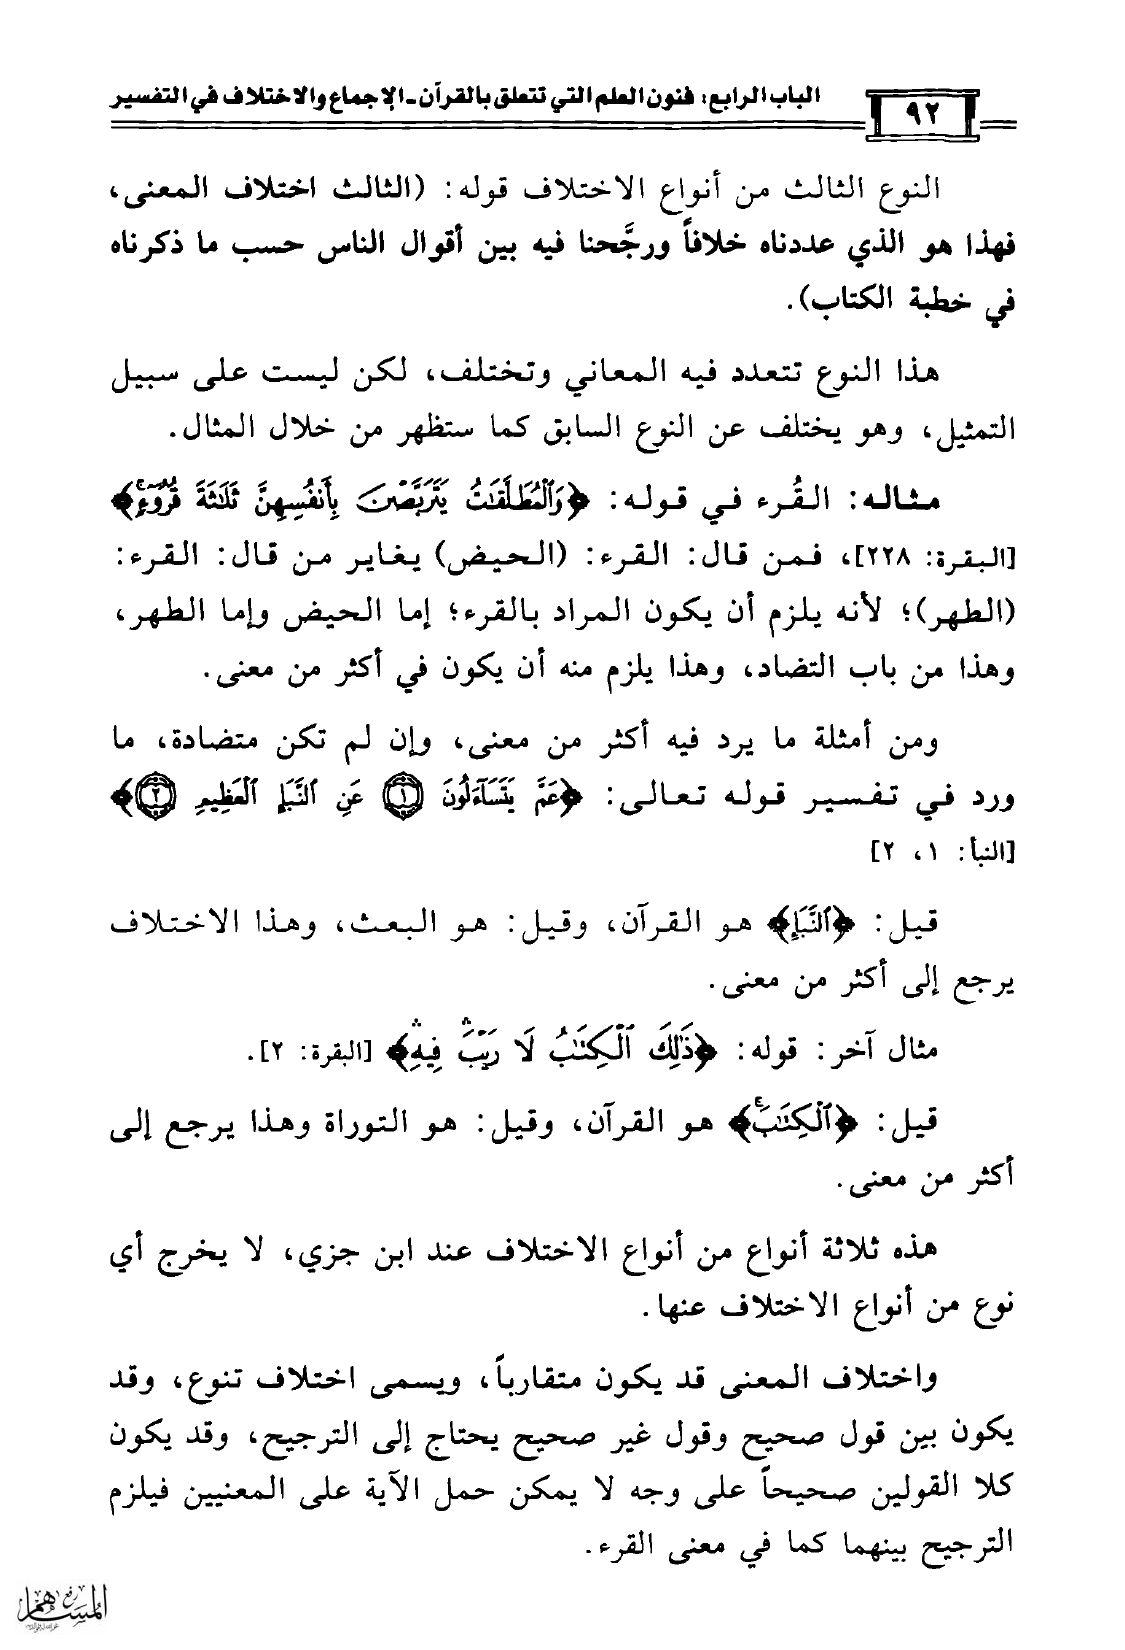 الباب الرابع: فنون العلم التي تتعلق بالقرآن - الإجماع والاختلاف في التفسير
٩٢
النوع الثالث من أنواع الاختلاف قوله: (الثالث اختلاف المعنى،
فهذا هو الذي عددناه خلافاً ورجَّحنا فيه بين أقوال الناس حسب ما ذكرناه
في خطبة الكتاب).
هذا النوع تتعدد فيه المعاني وتختلف، لكن ليست على سبيل
التمثيل، وهو يختلف عن النوع السابق كما ستظهر من خلال المثال.
مثاله: القُرء في قوله: ﴿وَٱلْمُطَلَّقَٰتُ يَتَرَبَّصْنَ بِأَنفُسِهِنَّ ثَلَٰثَةَ قُرُوٓءٍۚ﴾
[البقرة: ٢٢٨]، فمن قال: القرء: (الحيض) يغاير من قال: القرء:
(الطهر)؛ لأنه يلزم أن يكون المراد بالقرء؛ إما الحيض وإما الطهر،
وهذا من باب التضاد، وهذا يلزم منه أن يكون في أكثر من معنى.
ومن أمثلة ما يرد فيه أكثر من معنى، وإن لم تكن متضادة، ما
ورد في تفسير قوله تعالى: ﴿عَمَّ يَتَسَآءَلُونَ ١ عَنِ ٱلنَّبَإِ ٱلْعَظِيمِ ٢﴾
[النبأ: ١، ٢]
قيل: ﴿ٱلنَّبَإِ﴾ هو القرآن، وقيل: هو البعث، وهذا الاختلاف
يرجع إلى أكثر من معنى.
مثال آخر: قوله: ﴿ذَٰلِكَ ٱلْكِتَٰبُ لَا رَيْبَۛ فِيهِۛ﴾ [البقرة: ٢].
قيل: ﴿ٱلْكِتَٰبَۚ﴾ هو القرآن، وقيل: هو التوراة وهذا يرجع إلى
أكثر من معنى.
هذه ثلاثة أنواع من أنواع الاختلاف عند ابن جزي، لا يخرج أي
نوع من أنواع الاختلاف عنها.
واختلاف المعنى قد يكون متقارباً، ويسمى اختلاف تنوع، وقد
يكون بين قول صحيح وقول غير صحيح يحتاج إلى الترجيح، وقد يكون
كلا القولين صحيحاً على وجه لا يمكن حمل الآية على المعنيين فيلزم
الترجيح بينهما كما في معنى القرء.